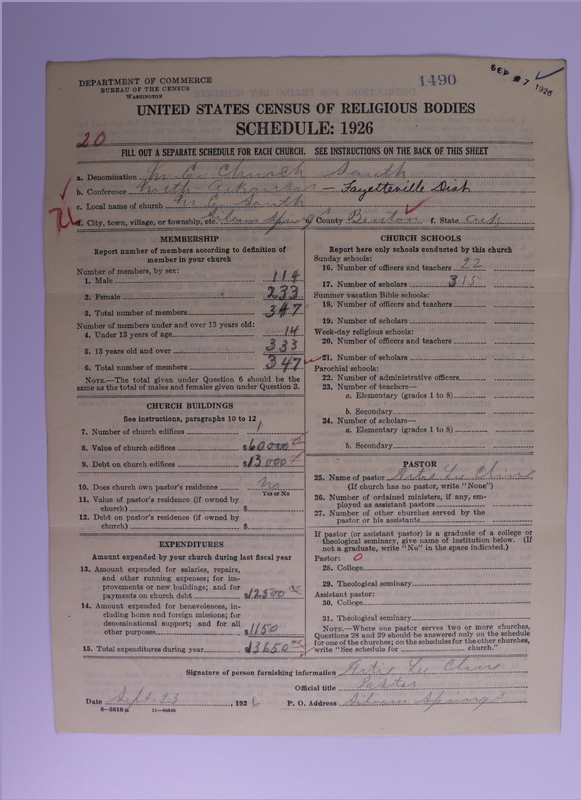 DEPARTMENT OF COMMERCE
BUREAU OF THE CENSUS
WASHINGTON
1490
SEP 27 1926
UNITED STATES CENSUS OF RELIGIOUS BODIES
SCHEDULE: 1926
20
FILL OUT A SEPARATE SCHEDULE FOR EACH CHURCH. SEE INSTRUCTIONS ON THE BACK OF THIS SHEET
a. Denomination M. E. Church South
b. Conference North Arkansas – Fayetteville Dist
c. Local name of church M. E. South
d. City, town, village, or township, etc. Siloam Springs County Benton f. State Ark
MEMBERSHIP
Report number of members according to definition of
member in your church
Number of members, by sex:
1. Male 114
2. Female 233
3. Total number of members 347
Number of members under and over 13 years old:
4. Under 13 years of age 14
5. 13 years old and over 333
6. Total number of members 347
NOTE.—The total given under Question 6 should be the
same as the total of males and females given under Question 3.
CHURCH BUILDINGS
See instructions, paragraphs 10 to 12
7. Number of church edifices 1
8. Value of church edifices $60000
9. Debt on church edifices $13000
10. Does church own pastor's residence No
Yes or No
11. Value of pastor's residence (if owned by
church) $
12. Debt on pastor's residence (if owned by
church) $
EXPENDITURES
Amount expended by your church during last fiscal year
13. Amount expended for salaries, repairs,
and other running expenses; for im-
provements or new buildings; and for
payments on church debt $12500
14. Amount expended for benevolences, in-
cluding home and foreign missions; for
denominational support; and for all
other purposes $1150
15. Total expenditures during year $13650
CHURCH SCHOOLS
Report here only schools conducted by this church
Sunday schools:
16. Number of officers and teachers 22
17. Number of scholars 315
Summer vacation Bible schools:
18. Number of officers and teachers
19. Number of scholars
Week-day religious schools:
20. Number of officers and teachers
21. Number of scholars
Parochial schools:
22. Number of administrative officers
23. Number of teachers—
a. Elementary (grades 1 to 8)
b. Secondary
24. Number of scholars—
a. Elementary (grades 1 to 8)
b. Secondary
PASTOR
25. Name of pastor
(If church has no pastor, write "None")
26. Number of ordained ministers, if any, em-
ployed as assistant pastors
27. Number of other churches served by the
pastor or his assistants
If pastor (or assistant pastor) is a graduate of a college or
theological seminary, give name of institution below. (If
not a graduate, write "No" in the space indicated.)
Pastor: 0
28. College
29. Theological seminary
Assistant pastor:
30. College
31. Theological seminary
NOTE.—Where one pastor serves two or more churches,
Questions 28 and 29 should be answered only on the schedule
for one of the churches; on the schedules for the other churches,
write "See schedule for church."
Signature of person furnishing information
Official title Pastor
Date Sept. 23, 1926 P. O. Address Siloam Springs